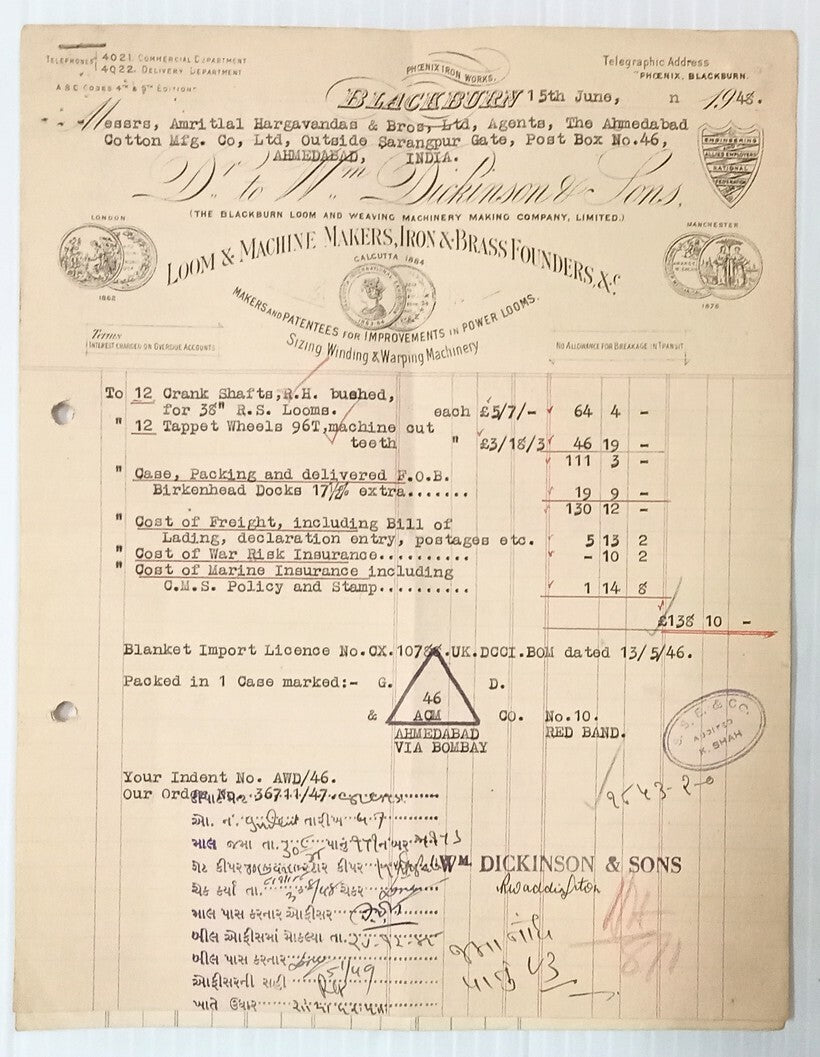 TELEPHONES 4021. COMMERCIAL DEPARTMENT
4022. DELIVERY DEPARTMENT
A B C CODES 4TH & 5TH EDITIONS
PHŒNIX IRON WORKS,
Telegraphic Address
"PHŒNIX, BLACKBURN.
BLACKBURN 15th June, 1948.
Messrs, Amritlal Hargavandas & Bros, Ltd, Agents, The Ahmedabad
Cotton Mfg. Co, Ltd, Outside Sarangpur Gate, Post Box No.46,
AHMEDABAD, INDIA.
ENGINEERING
ALLIED EMPLOYERS
NATIONAL
FEDERATION
Dr. to Wm. Dickinson & Sons,
(THE BLACKBURN LOOM AND WEAVING MACHINERY MAKING COMPANY, LIMITED.)
LONDON
1862
MANCHESTER
1875
LOOM & MACHINE MAKERS, IRON & BRASS FOUNDERS, &c.
CALCUTTA 1884
MAKERS AND PATENTEES FOR IMPROVEMENTS IN POWER LOOMS.
Sizing Winding & Warping Machinery
Terms
INTEREST CHARGED ON OVERDUE ACCOUNTS
NO ALLOWANCE FOR BREAKAGE IN TRANSIT
To 12 Crank Shafts, R.H. bushed,
for 38" R.S. Looms. each £5/7/- 64 4 -
" 12 Tappet Wheels 96T, machine cut
teeth " £3/18/3 46 19 -
111 3 -
" Case, Packing and delivered F.O.B.
Birkenhead Docks 17½% extra....... 19 9 -
130 12 -
" Cost of Freight, including Bill of
Lading, declaration entry, postages etc. 5 13 2
" Cost of War Risk Insurance.......... - 10 2
" Cost of Marine Insurance including
C.M.S. Policy and Stamp.......... 1 14 8
£138 10 -
Blanket Import Licence No.CX.10788.UK.DCCI.BOM dated 13/5/46.
Packed in 1 Case marked:- G. D.
46
& ACM CO. No.10.
AHMEDABAD RED BAND.
VIA BOMBAY
S. S. E. & CO.
AUDITED
K. SHAH
Your Indent No. AWD/46.
Our Order No. 36711/47.
૧૮૫૩-૨-૦
ઓ. નં. Indent તારીખ
માલ જમા તા. પાનું ૧૧૧ નંબર
ગેટ કીપર સ્ટોર કીપર
WM. DICKINSON & SONS
RWaddington
ચેક કર્યા તા. ચેકર
માલ પાસ કરનાર ઓફીસર
બીલ ઓફીસમાં મોકલ્યા તા.
બીલ પાસ કરનાર
ઓફીસરની સહી
ખાતે ઉધાર
જમા નોંધ
પાનું ૫૩